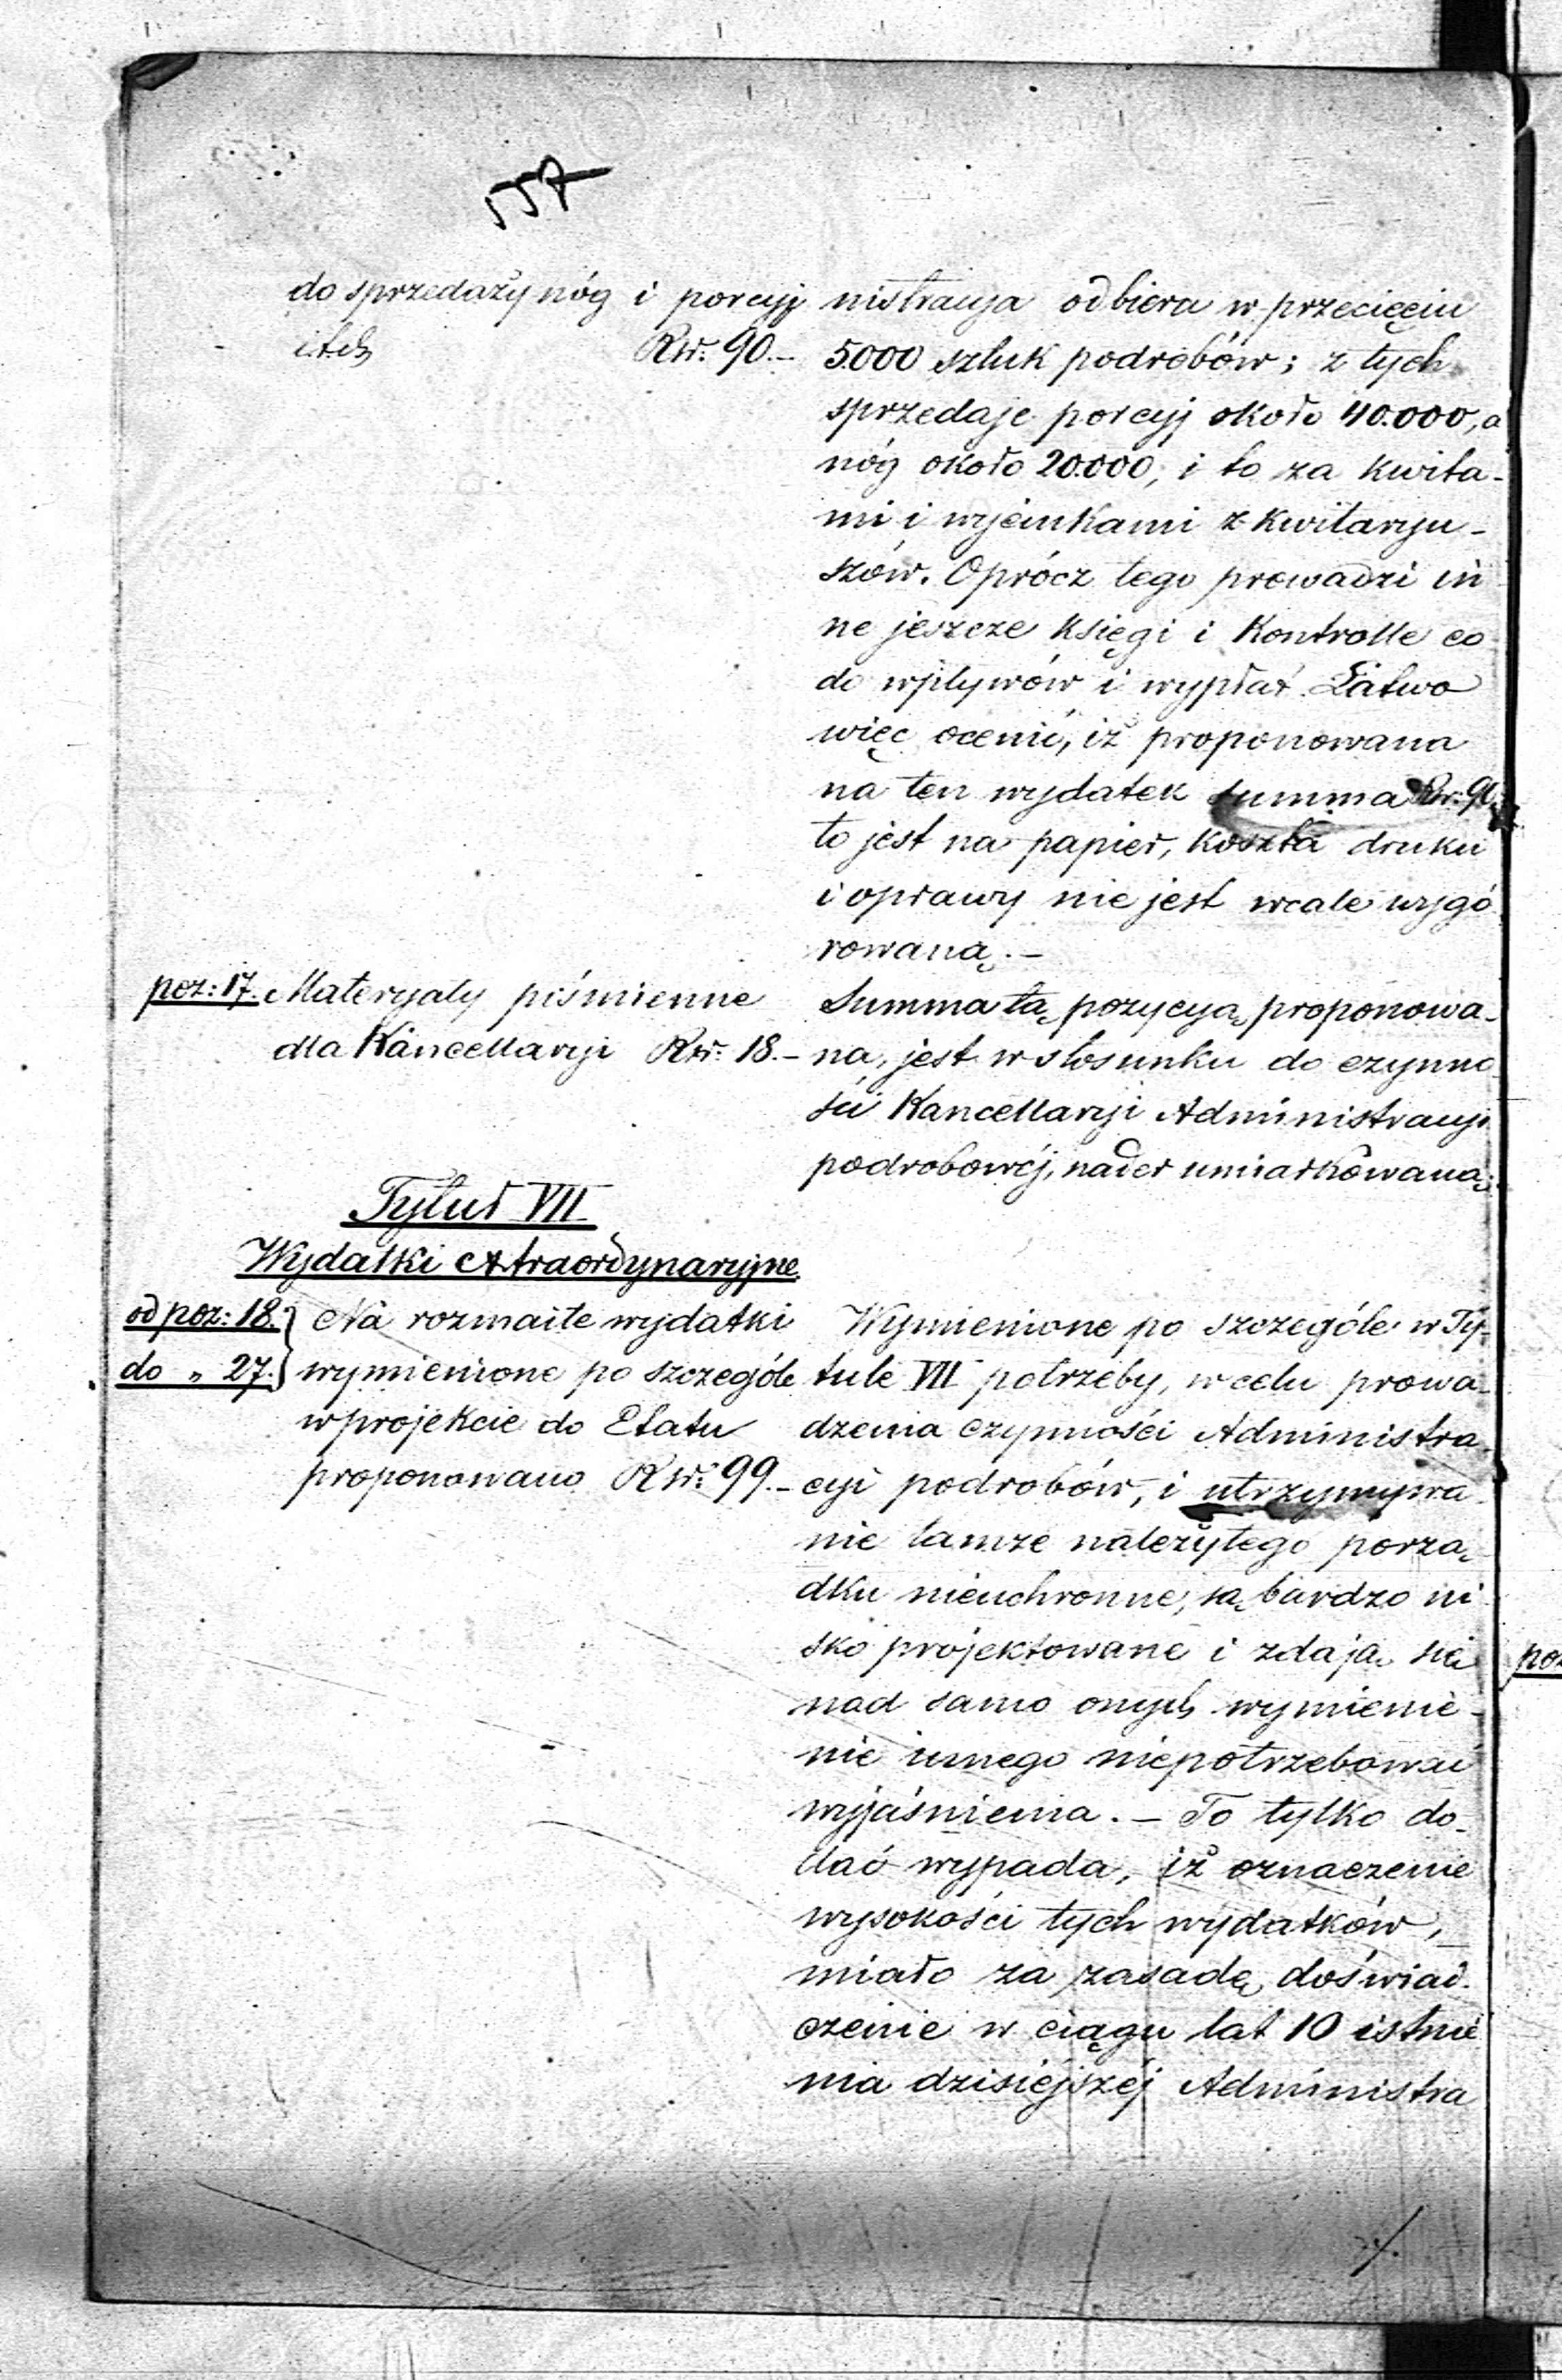 557
do sprzedaży nóg i porcyj
itd. Rsr: 90.-
nistracya odbiera w przecięciu
5.000 sztuk podrobów; z tych
sprzedaje porcyj około 40.000, a
nóg około 20.000, i to za kwita-
mi i wycinkami z kwitaryu-
szów. Oprócz tego prowadzi in
ne jeszcze księgi i kontrolle co
do wpływów i wypłat. Łatwo
więc ocenić, iż proponowana
na ten wydatek summa Rsr: 90
to jest na papier, koszta druku
i oprawy nie jest wcale wygó
rowaną.-
poz: 17. Materyały piśmienne
dla Kancellaryi Rsr: 18.-
Summa tą pozycyą proponowa-
na, jest w stosunku do czynno
ści Kancellaryi Administracyi
podrobowéj, nader umiarkowaną.
Tytuł VII
Wydatki extraordynaryjne.
od poz: 18. Na rozmaite wydatki
do „ 27. wymienione po szczególe
w projekcie do Etatu
proponowano Rsr: 99.-
Wymienione po szczególe w Ty-
tule VII potrzeby, w celu prowa-
dzenia czynności Administra-
cyi podrobów, i utrzymywa
nie tamże należytego porzą-
dku nieuchronne, są bardzo ni
sko projektowane i zdają się
nad samo onych wymienie-
nie innego niepotrzebować
wyjaśnienia. - To tylko do-
dać wypada, iż oznaczenie
wysokości tych wydatków,
miało za zasadę doświad-
czenie w ciągu lat 10 istnie
nia dzisiejszéj Administra
poz